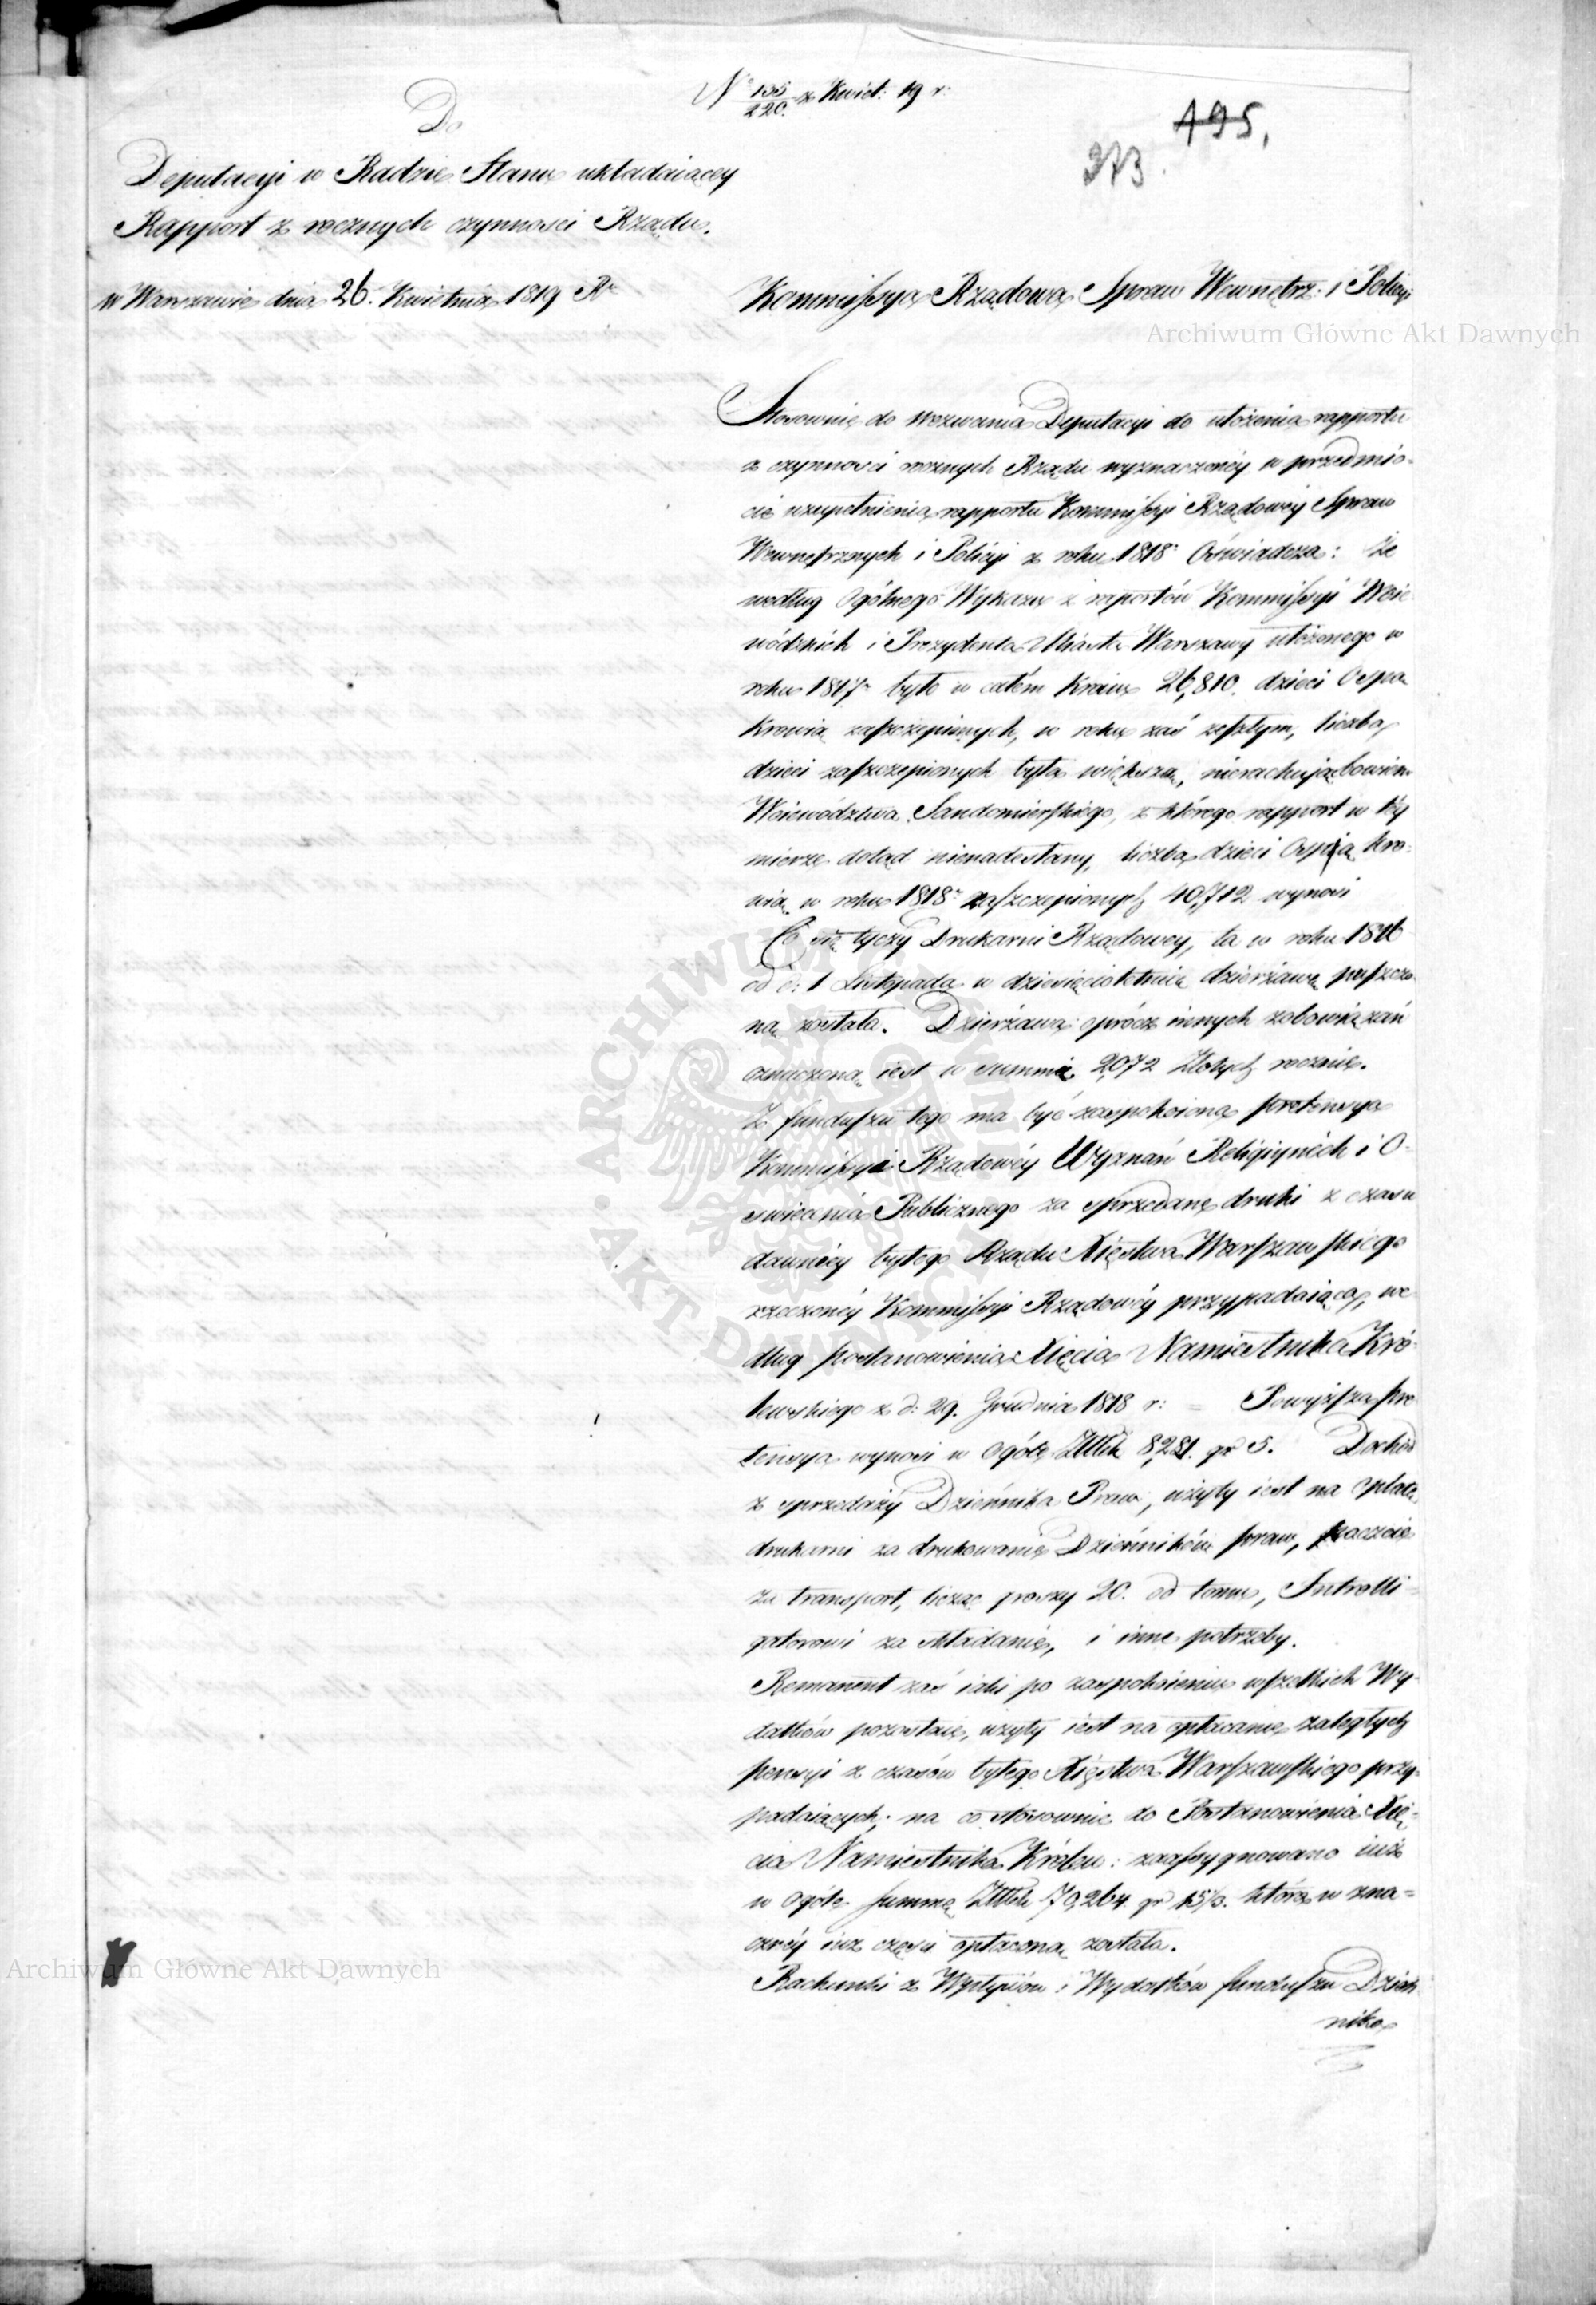 Nº 135/220. z Kwiet: 19 r:
495,
373.
Do
Deputacyi w Radzie Stanu układaiącey
Rapport z rocznych czynności Rządu.
w Warszawie dnia 26. Kwietnia 1819 Rº
Kommissya Rządowa Spraw Wewnętrz: i Policyi
Archiwum Główne Akt Dawnych
Stosownie do wezwania Deputacyi do ułożenia rapportu
z czynności rocznych Rządu wyznaczonéy w przedmio-
cie uzupełnienia rapportu Kommissyi Rządowéy Spraw
Wewnętrznych i Policyi z roku 1818º Oświadcza: że
według Ogólnego Wykazu z raportów Kommissyi Woie
wódzkich i Prezydenta Miasta Warszawy ułożonego w
roku 1817º było w całém Kraiu 26,810. dzieci Ospą
Krowią zaszczepionych, w roku zaś zeszłym, liczba
dzieci zaszczepionych była większą, nierachuiąc bowiem
Woiewodztwa Sandomierskiego, z którego rapport w téy
mierze dotąd nienadesłany, liczba dzieci Ospą kro-
wią w roku 1818º zaszczepionych 40,712 wynosi
Co się tyczy Drukarni Rządowey, ta w roku 1816
od d: 1 Listopada w dziesięcioletnią dzierżawę puszczo-
ną została. Dzierżawa oprócz innych zobowiązań
oznaczona iest w summie 2,072 Złotych rocznie.
Z funduszu tego ma być zaspokoioną pretensya
Kommissyi Rządowéy Wyznań Religiynéch i O-
świecenia Publicznego za sprzedane druki z czasu
dawnéy byłego Rządu Xięstwa Warszawskiego
rzeczonéy Kommissyi Rządowéy przypadaiąca, we
dług postanowienia Xięcia Namiestnika Kró-
lewskiego z d: 29. Grudnia 1818 r: = Powyższa pre
tensya wynosi w Ogóle Złtch 8,281. gr 5. Dochód
z sprzedaży Dziennika Praw, użyty iest na opłatę
drukarni za drukowanie Dzienników praw, poczcie
za transport, licząc groszy 20. od tomu, Introlli-
gatorowi za składanie, i inne potrzeby.
Remanent zaś iaki po zaspokoieniu wszelkich Wy-
datków pozostaie, użyty iest na opłacanie zaległych
pensyi z czasów byłego Xięstwa Warszawskiego przy-
padaiących; na co stosownie do Postanowienia Xię-
cia Namiestnika Królew: zaassygnowano iuż
w Ogóle Summę Złtch 70,264. gr 15⅓. która w zna=
cznéy iuż części opłaconą została.
Archiwum Główne Akt Dawnych
Rachunki z Wpływów i Wydatków funduszu Dzien-
nika